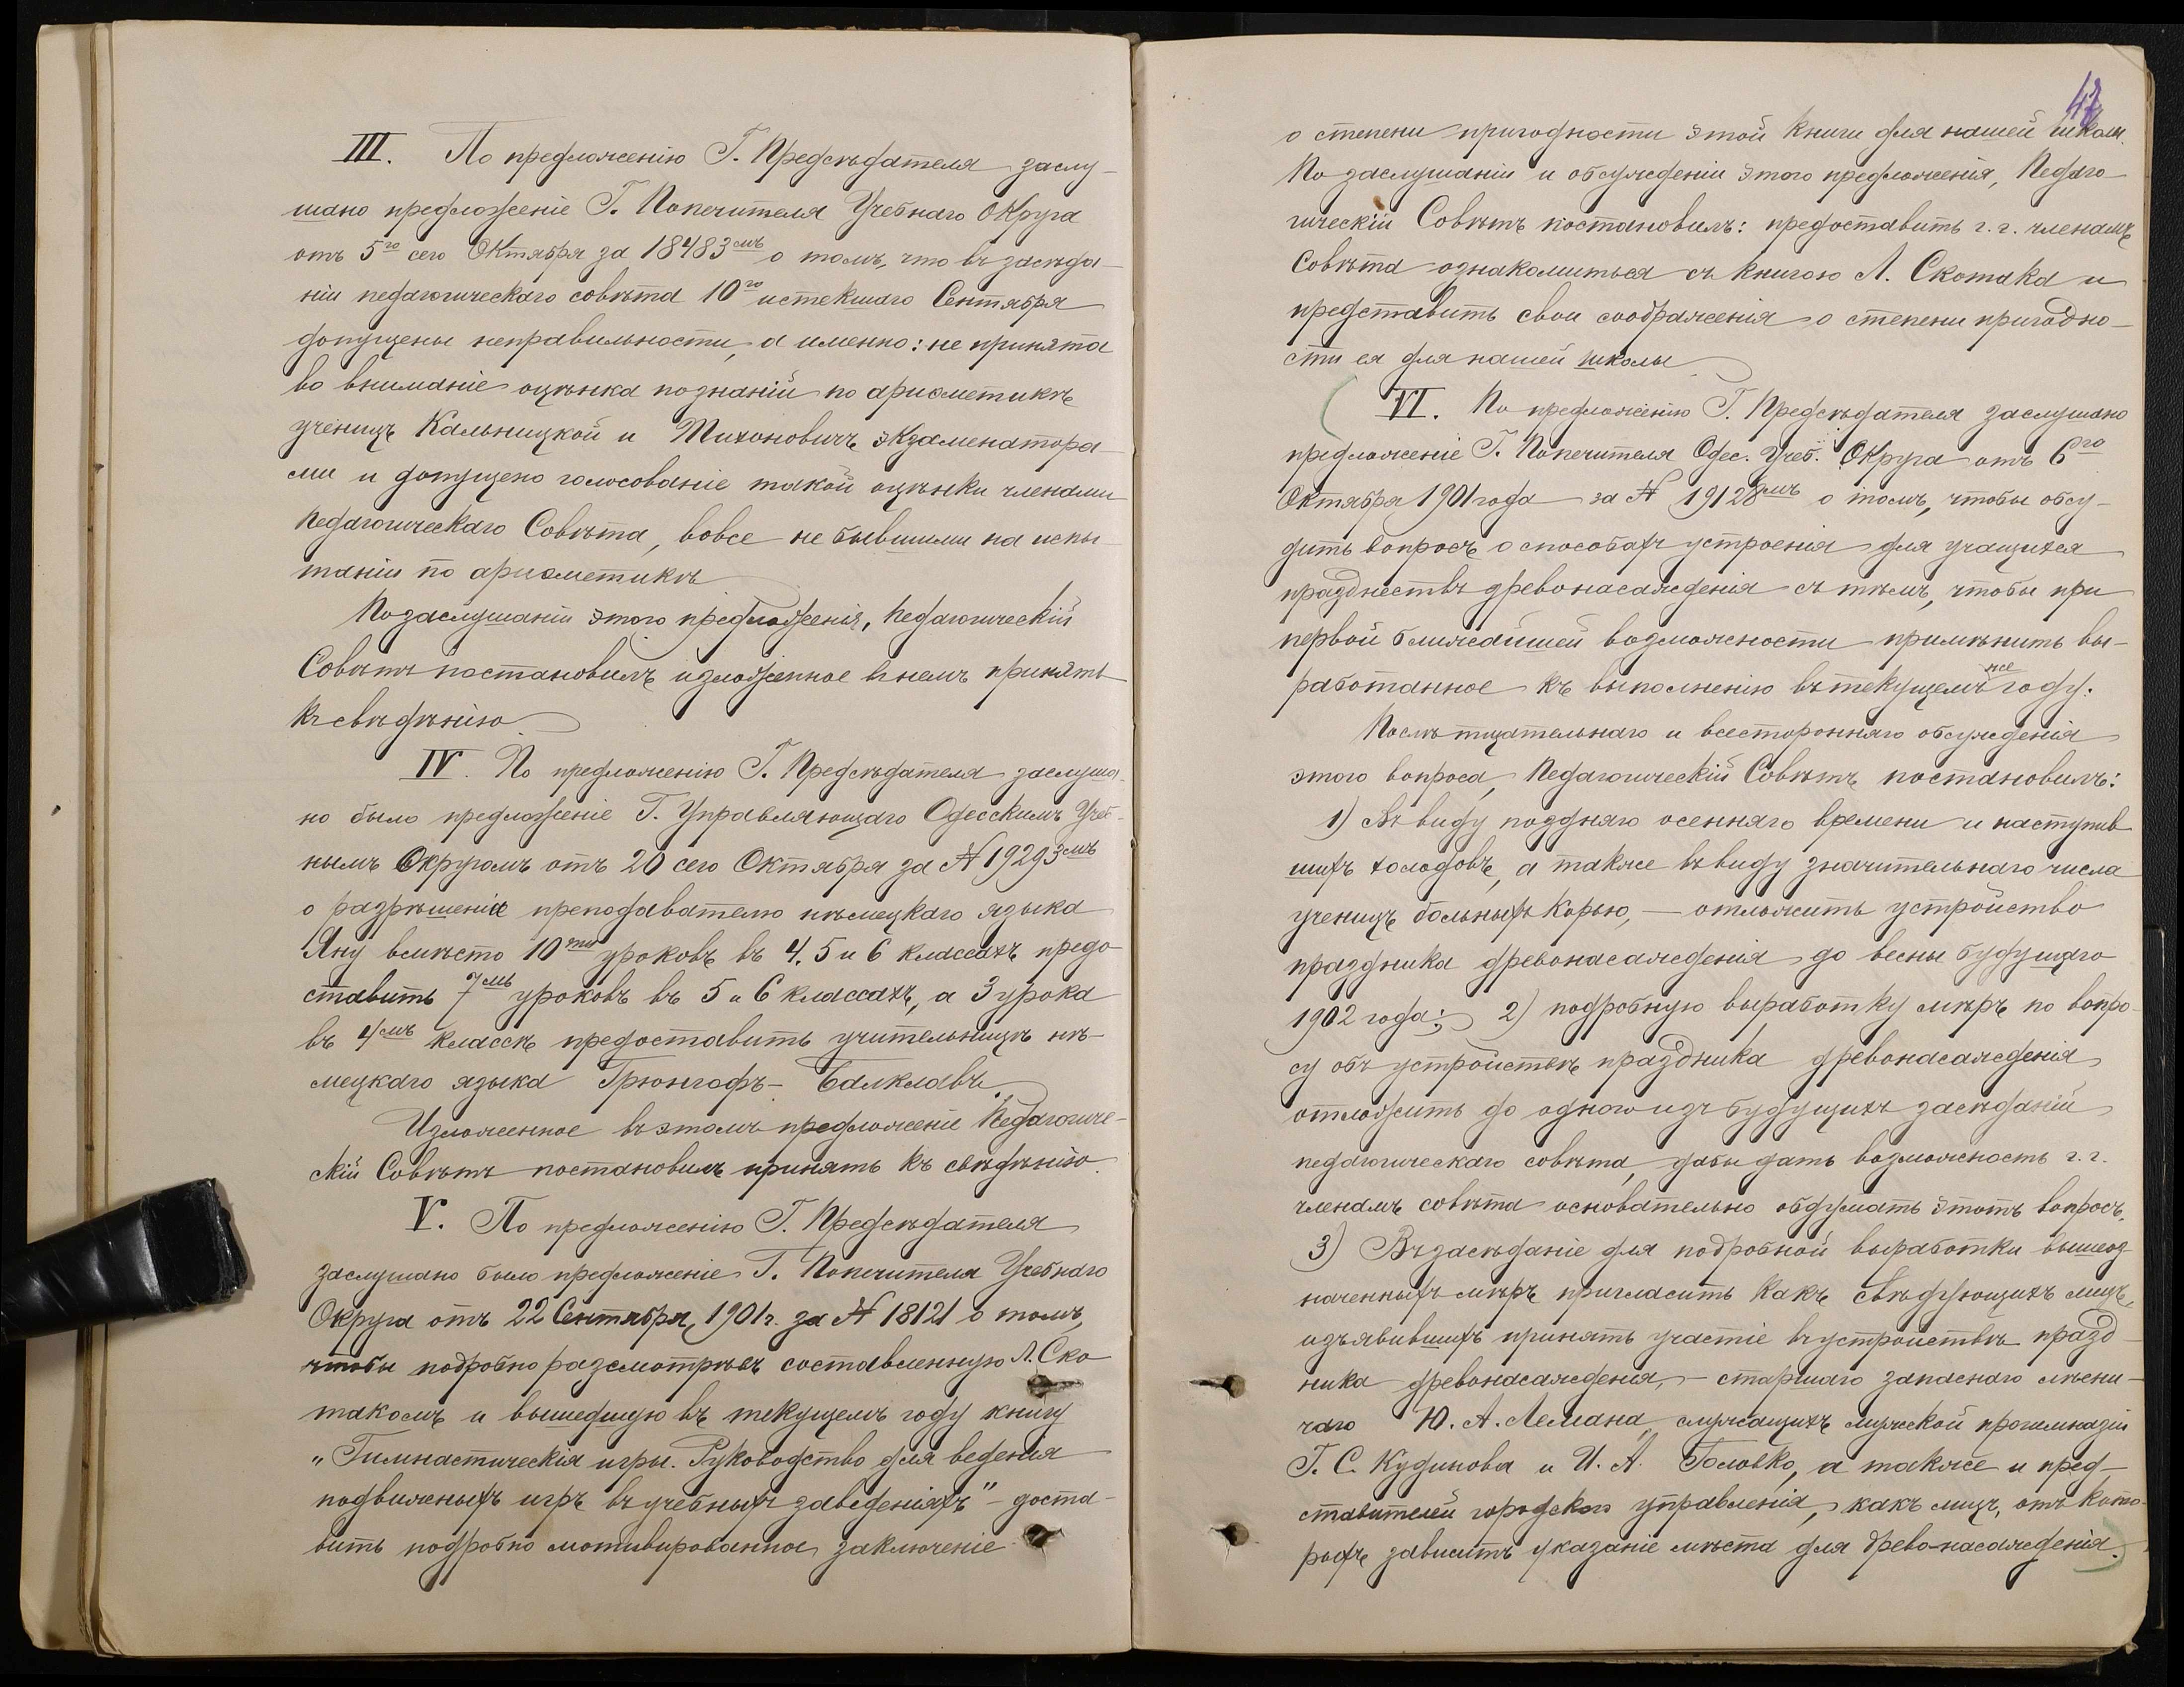 III. По предложенію Г. Предсѣдателя заслу-
шано предложеніе Г. Попечителя Учебнаго Округа
отъ 5го сего Октября за 18483смъ о томъ, что въ засѣда-
ніи педагогическаго совѣта 10го истекшаго Сентября
допущены неправильности, а именно: не принята
во вниманіе оцѣнка познаній по ариѳметикѣ
ученицъ Кальницкой и Тихоновичъ экзаменатора-
ми и допущено голосованіе такой оцѣнки членами
Педагогическаго Совѣта, вовсе не бывшими на испы-
таніи по ариѳметикѣ
По заслушаніи этого предложенія, Педагогическій
Совѣтъ постановилъ изложенное въ немъ принять
къ свѣдѣнію.
IV. По предложенію Г. Предсѣдателя заслуша-
но было предложеніе Г. Управляющаго Одесскимъ Учеб-
нымъ Округомъ отъ 20 сего Октября за № 19293смъ
о разрѣшеніи преподавателю нѣмецкаго языка
Яну вмѣсто 10ти уроковъ въ 4, 5 и 6 классахъ предо-
ставить 7смь уроковъ въ 5 и 6 классахъ, а 3 урока
въ 4омъ классѣ предоставить учительницѣ нѣ-
мецкаго языка Грюнгофъ-Балклавъ.
Изложенное въ этомъ предложеніе Педагогиче-
скій Совѣтъ постановилъ принять къ свѣдѣнію.
V. По предложенію Г. Предсѣдателя
заслушано было предложеніе Г. Попечителя Учебнаго
Округа отъ 22 Сентября, 1901 г. за № 18121 о томъ,
чтобы подробно разсмотрѣвъ составленную Л. Ско-
такомъ и вышедшую въ текущемъ году книгу
„Гимнастическія игры. Руководство для веденія
подвижныхъ игръ въ учебныхъ заведеніяхъ" – доста-
вить подробно мотивированное заключеніе
47
о степени пригодности этой книги для нашей школы.
По заслушаніи и обсужденіи этого предложенія, Педаго-
гическій Совѣтъ постановилъ: предоставить г. г. членамъ
Совѣта ознакомиться съ книгою Л. Скотака и
представить свои соображенія о степени пригодно-
сти ея для нашей школы
VI. По предложенію Г. Предсѣдателя заслушано
предложеніе Г. Попечителя Одес. Учеб. Округа отъ 6го
Октября 1901 года за № 19128мъ о томъ, чтобы обсу-
дить вопросъ о способахъ устроенія для учащихся
празднествъ древонасажденія съ тѣмъ, чтобы при
первой ближайшей возможности примѣнить вы-
работанное къ выполненію въ текущемъ же году.
Послѣ тщательнаго и всесторонняго обсужденія
этого вопроса, Педагогическій Совѣтъ постановилъ:
1) Въ виду поздняго осенняго времени и наступив
шихъ холодовъ, а также въ виду значительнаго числа
ученицъ больныхъ корью, – отложить устройство
праздника древонасажденія до весны будущаго
1902 года; 2) подробную выработку мѣръ по вопро-
су объ устройствѣ праздника древонасажденія
отложить до одного изъ будущихъ засѣданій
педагогическаго совѣта, дабы дать возможность г. г.
членамъ совѣта основательно обдумать этотъ вопросъ.
3) Въ засѣданіе для подробной выработки вышеоз-
наченныхъ мѣръ пригласить какъ свѣдующихъ лицъ,
изъявившихъ принять участіе въ устройствѣ празд-
ника древонасажденія, – старшаго запаснаго лѣсни-
чаго Ю. А. Лемана, служащихъ мужской прогимназіи
Г. С. Кудинова и И. А. Головко, а также и пред-
ставителей городского управленія, какъ лицъ, отъ кото-
рыхъ зависитъ указаніе мѣста для древо-насажденія.